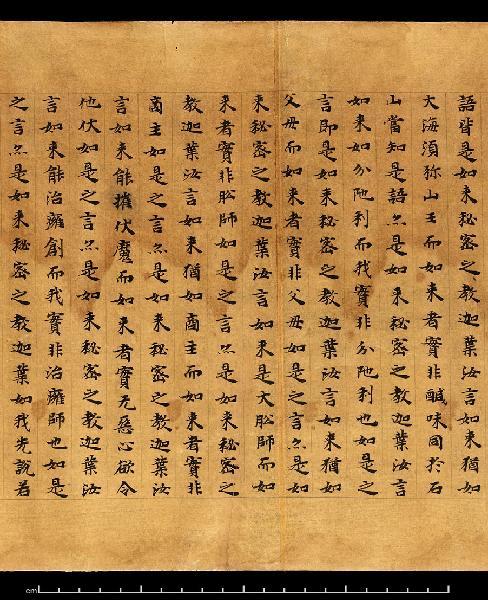 語皆是如来秘密之教迦葉汝言如来猶如
大海湏弥山王而如来者實非醎味同於石
山當知是語亦是如来秘密之教迦葉汝言
如来如分陁利而我實非分陁利也如是之
言即是如来秘密之教迦葉汝言如来猶如
父母而如来者實非父母如是之言亦是如
来秘密之教迦葉汝言如来是大舩師而如
来者實非舩師如是之言亦是如来秘密之
教迦葉汝言如来猶如商主而如来者實非
商主如是之言亦是如来秘密之教迦葉汝
言如来能摧伏魔而如来者實无慈心欲令
他伏如是之言亦是如来秘密之教迦葉汝
言如来能治癰創而我實非治癰師也如是
之言亦是如来秘密之教迦葉如我先說若
cm